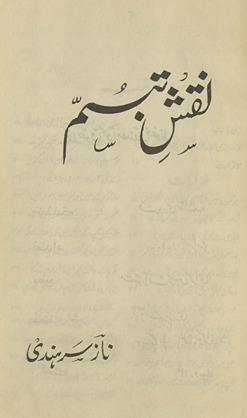 نقشِ تبسّم
ناز سرہندی